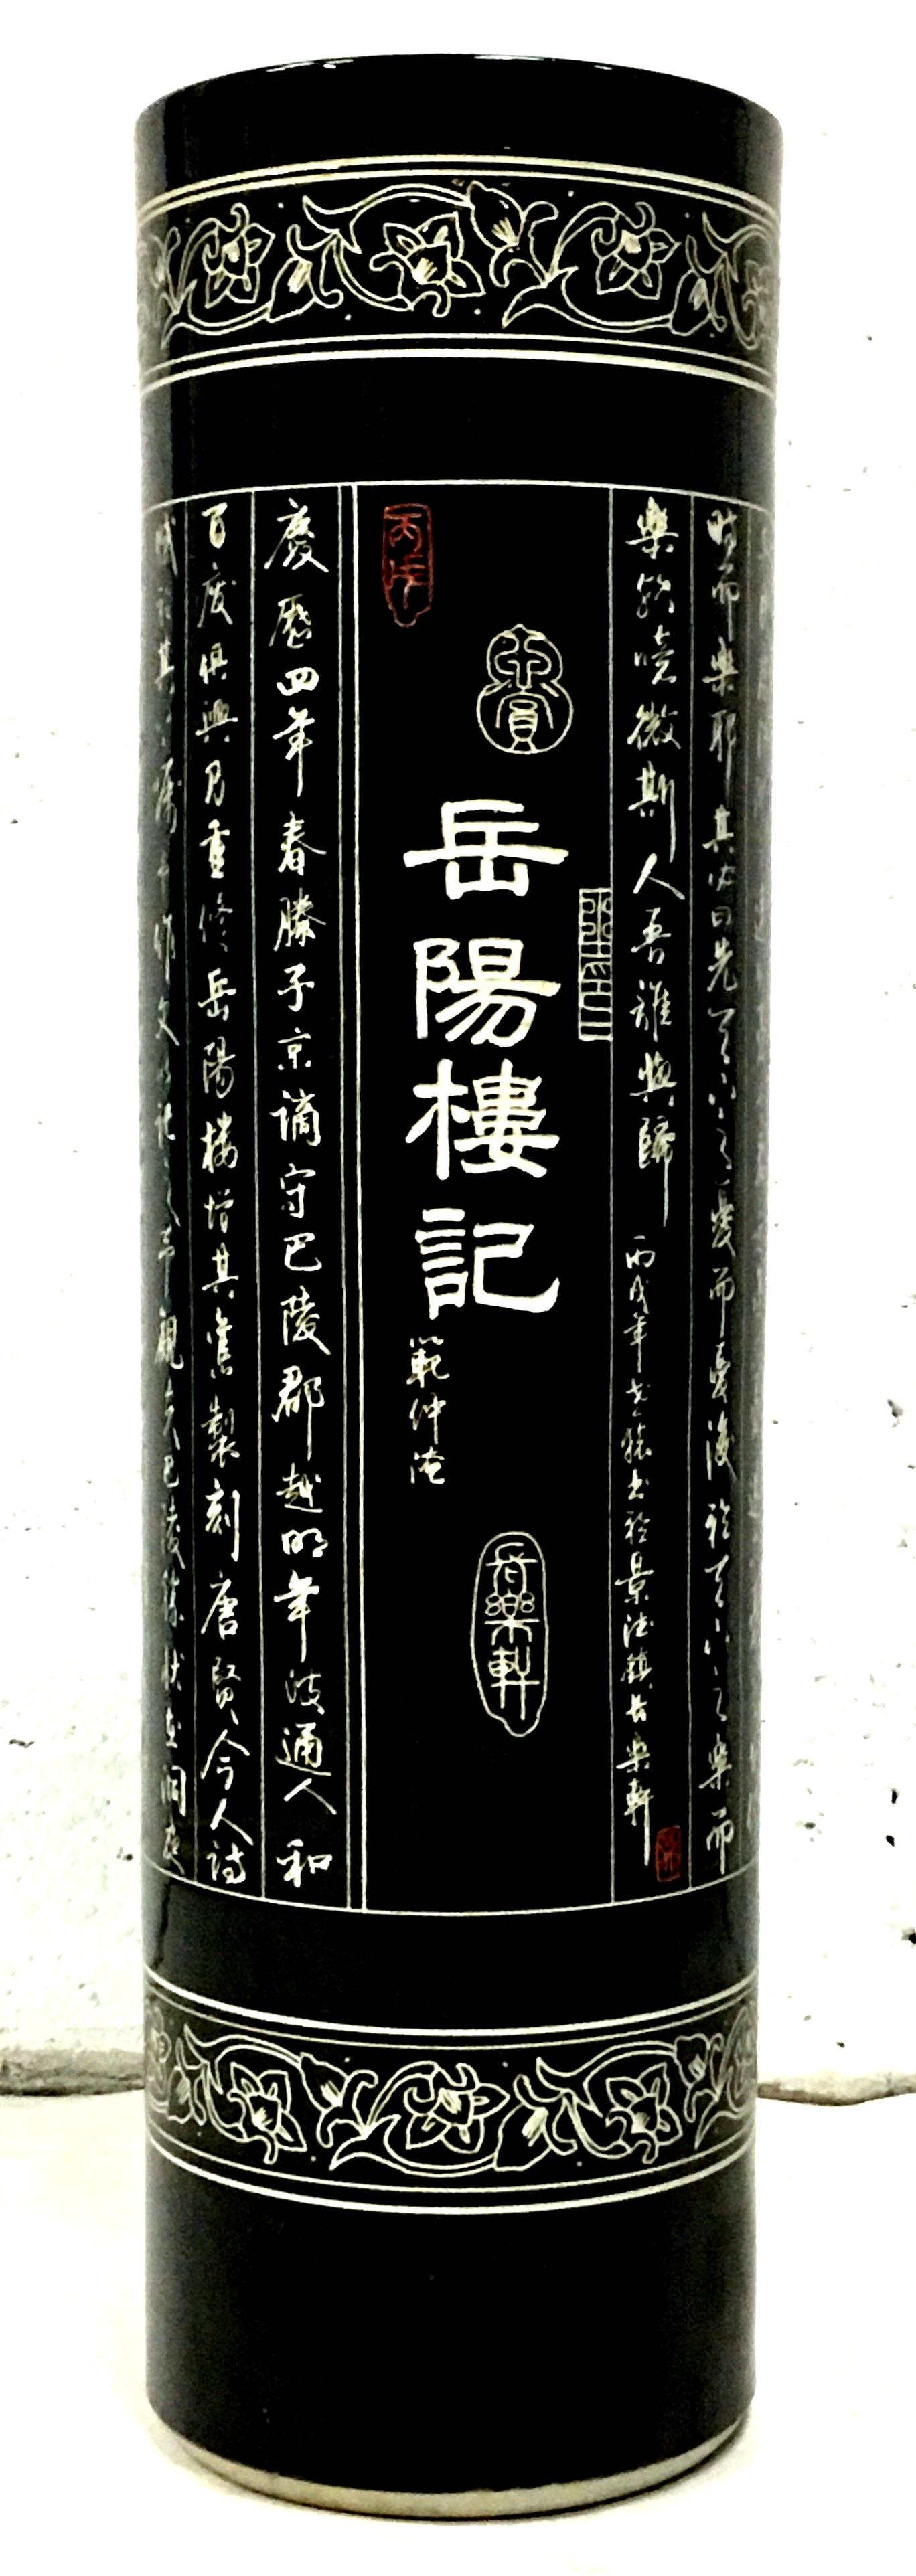 丙戌
岳陽樓記
範仲淹
長樂軒
慶歷四年春滕子京謫守巴陵郡越明年政通人和
百廢俱興乃重修岳陽楼增其舊製刻唐賢今人詩
其上屬予作文以記之予觀夫巴陵勝狀在洞庭
時而樂耶其必曰先天下之憂而憂後於天下之樂而
樂歟噫微斯人吾誰與歸 丙戌年 書於景德鎮長樂軒